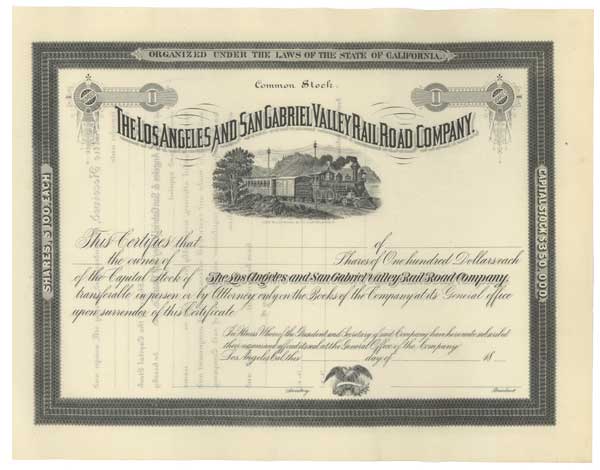 ORGANIZED UNDER THE LAWS OF THE STATE OF CALIFORNIA.
Common Stock.
THE LOS ANGELES AND SAN GABRIEL VALLEY RAIL ROAD COMPANY.
SHARES, $100 EACH
CAPITAL STOCK $
This Certifies that of
the owner of Shares of One hundred Dollars each
of the Capital Stock of The Los Angeles and San Gabriel Valley Rail Road Company,
transferable in person or by Attorney only on the Books of the Company at its General office
upon surrender of this Certificate
In Witness Whereof the President and Secretary of said Company have hereunto subscribed
their names and affixed its seal at the General Office of the Company
Los Angeles Cal. this day of 18
Secretary President